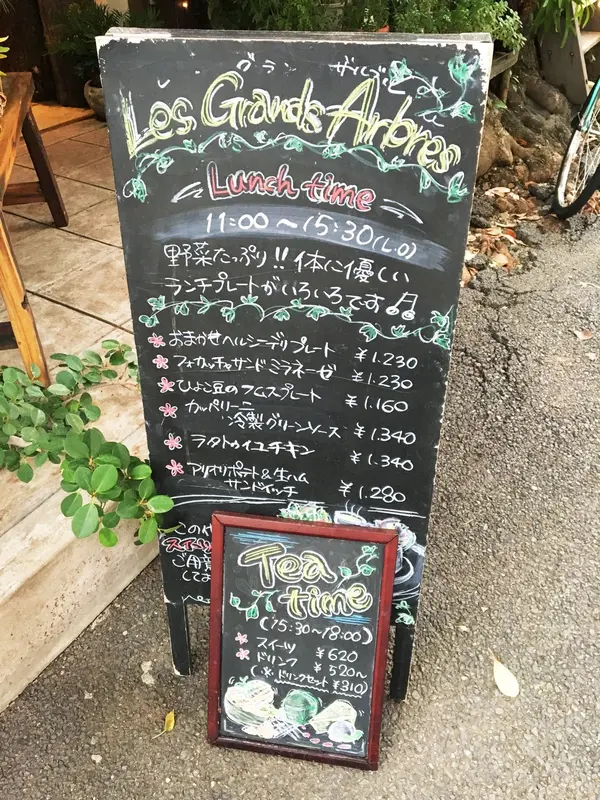 グラン ザルブル
Les Grands Arbres
Lunch time
11:00〜15:30(L.O)
野菜たっぷり!! 体に優しい
ランチプレートがいろいろです♫
おまかせヘルシーデリプレート ¥1.230
フォカッチャサンド ミラネーゼ ¥1.230
ひよこ豆のフムスプレート ¥1.160
カッペリーニ
冷製グリーンソース ¥1.340
ラタトゥイユチキン ¥1.340
アリオリポテト&生ハム
サンドイッチ ¥1.280
この
スイーツ
ご用意
して
Tea
time
(15:30〜18:00)
スイーツ ¥620
ドリンク ¥520〜
(※ドリンクセット ¥310)